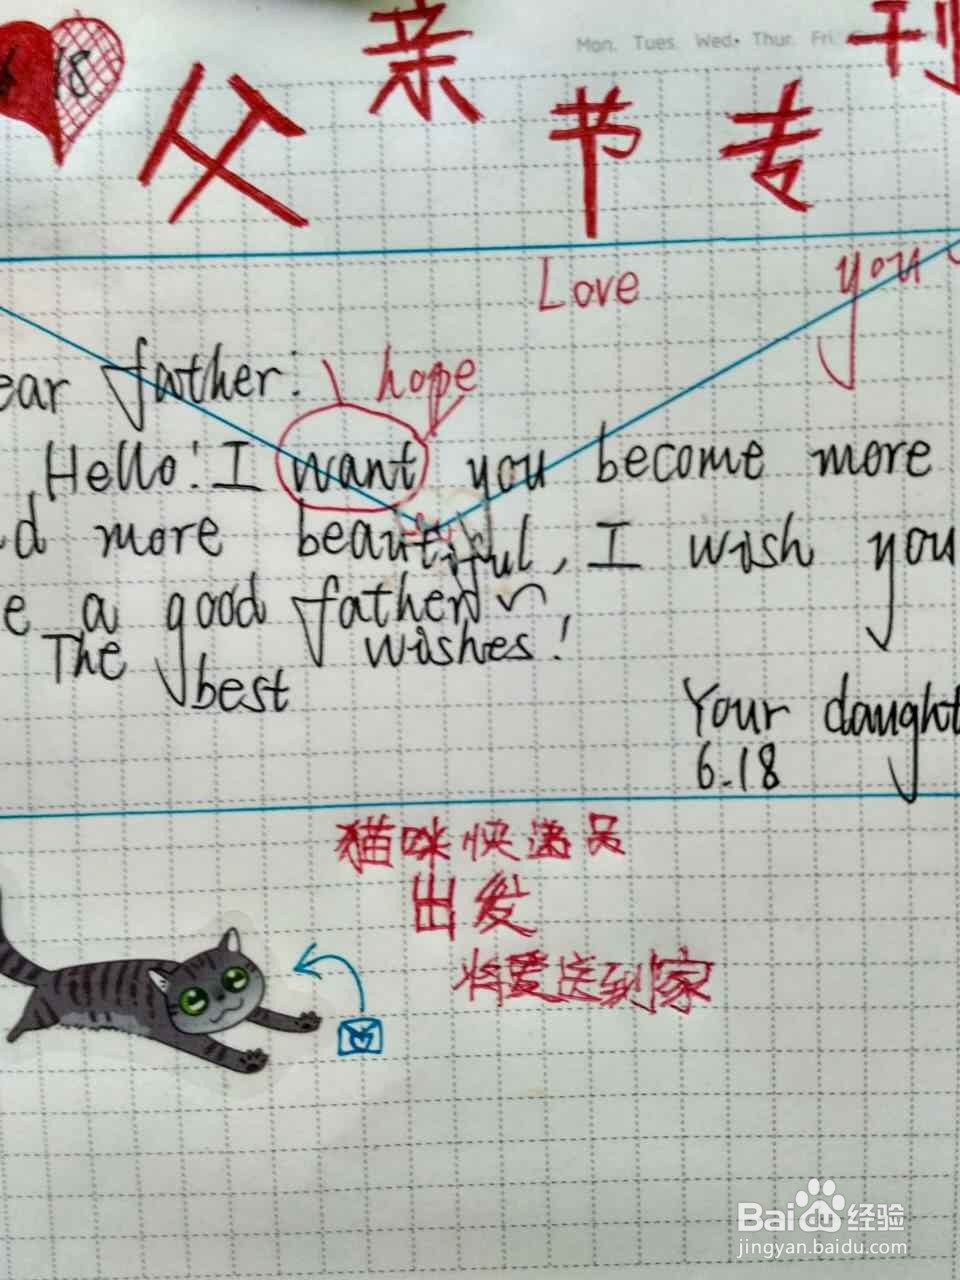 18
Mon. Tues. Wed. Thur. Fri.
父亲节专刊
Love you
ear father: hope
Hello! I want you become more
d more beautiful, I wish you
e a good father
The best wishes!
Your daught
6.18
猫咪快递员
出发
将爱送到家
Baidu经验
jingyan.baidu.com